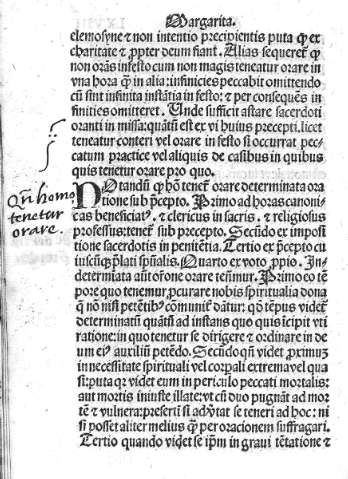 Margarita.
elemosyne ⁊ non intentio precipientis puta ꝙ ex
charitate ⁊ ꝓpter deum fiant. Alias sequeret᷑ ꝙ
non orãs in festo cum non magis teneatur orare in
vna hora ꝙ̃ in alia: infinicies peccabit omittendo
cũ sint infinita instãtia in festo: ⁊ per consequẽs in
finities omitteret. Unde sufficit astare sacerdoti
oranti in missa: quãtũ est ex vi huius precepti. licet
teneatur conteri vel orare in festo si occurrat pec-
catum practice vel aliquis de casibus in quibus
quis tenetur orare pro quo.
Qñ homo
tenetur
orare.
NOtandũ ꝙ hõ tenet᷑ orare determinata ora
tione sub p̃cepto. Primo ad horas canoni-
cas beneficiatꝰ. ⁊ clericus in sacris. ⁊ religiosus
professus: tenet᷑ sub precepto. Secũdo ex imposi
tione sacerdotis in penitẽtia. Tertio ex p̃cepto cu
iuscũqꝫ p̃lati spũalis. Quarto ex voto ꝓpio. In-
determĩata aũt orõne orare tenẽmur. Primo eo tẽ
pore quo tenemur ꝓcurare nobis spiritualia dona
q̃ nõ nisi petẽtibꝰ cõmunit᷑ dãtur: qõ tẽpus videt᷑
determinatũ quãtũ ad instans quo quis ĩcipit vti
ratione: in quo tenetur se dirigere ⁊ ordinare in de
um eiꝰ auxiliũ petẽdo. Secũdo qñ videt ꝓximũ
in necessitate spirituali vel corpali extrema vel qua
si: puta qꝛ videt eum in periculo peccati mortalis:
aut mortis iniuste illate: vt cũ duo pugnãt ad mor
tẽ ⁊ vulnera: presertĩ si aduertat se teneri ad hoc: ni
si posset aliter melius ꝙ̃ per oracionem suffragari.
Tertio quando videt se ip̃m in graui tẽtatione ⁊